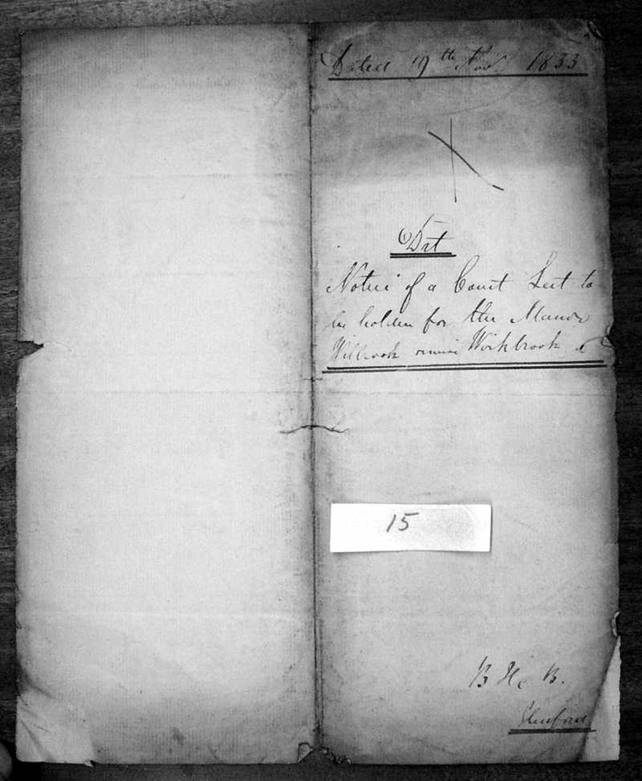 Dated 19th Nov 1833
Dft
Notice of a Court Leet to
be holden for the Manor
Wickbrook
15
B H. B.